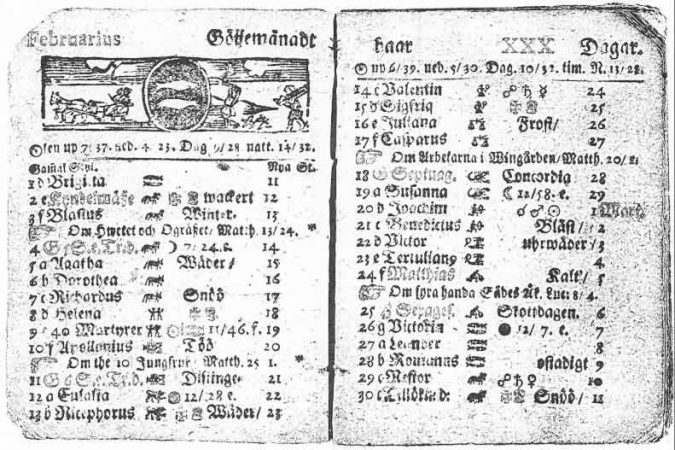 Februarius Göijemånadt
⊙len up 7/37. ned. 4. 23. Dag 9/28 natt. 14/32.
Gamal Styl. Nya St.
1 d Brigitta 11
2 e Kyndelmässe wackert 12
3 f Blasius Winter. 13
Om Hwetet och Ogräset/ Matth. 13/24.
4 G 5 S. e. Tr. d. ☽ 7/24. e. 14
5 a Agatha Wäder/ 15
6 b Dorothea 16
7 c Richardus Snöö 17
8 d Helena 18
9 e 40 Martyrer 11/46. f. 19
10 f Apollonius Töö 20
Om the 10 Jungfrur Matth. 25 1.
11 G 6 S. e. Tr. d. Distingen 21
12 a Eulalia 12/28 e. 22
13 b Nicephorus Wäder/ 23
haar XXX Dagar.
⊙ up 6/39. ned. 5/30. Dag. 10/32. tim. N. 13/28.
14 c Valentin ☍ ♄ ☿ 24
15 d Sigfrid 25
16 e Juliana Frost/ 26
17 f Casparus 27
Om Arbetarna i Wingården/Matth. 20/1.
18 G Septuag. Concordia 28
19 a Susanna ☾ 12/58. e. 29
20 b Joachim ☌ ♂ ⊙ 1 Mart.
21 c Benedictus Bläst/ 2
22 d Victor uhrwäder/ 3
23 e Tertulianus 4
24 f Matthias Kalt/ 5
Om fyra handa Sädes Åk. Luc: 8/4.
25 G Sexages. Skottdagen. 6
26 g Victorin ● 12/7. e. 7
27 a Leander 8
28 b Romanus ostadigt 9
29 c Nestor ☍ ♄ ♀ 10
30 c Tillökned: Snöö/ 11